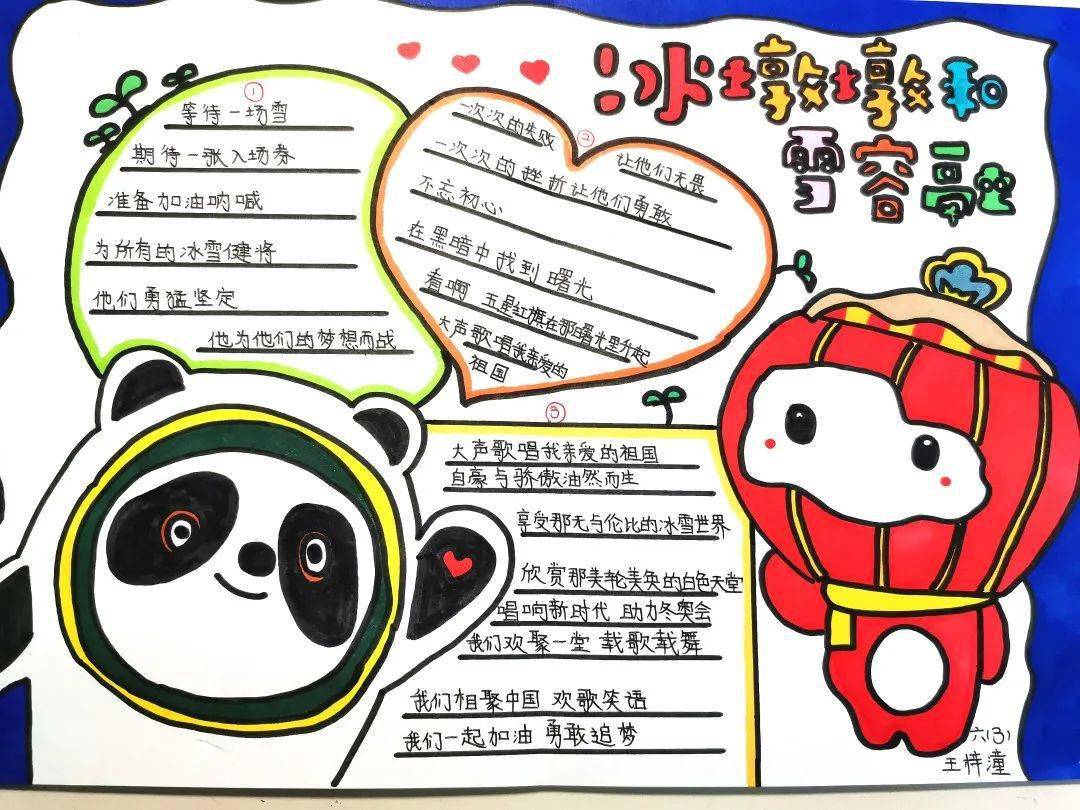 冰墩墩和
雪容融
①
等待一场雪
期待一张入场券
准备加油呐喊
为所有的冰雪健将
他们勇猛坚定
他为他们的梦想而战
②
一次次的失败
让他们无畏
一次次的挫折让他们勇敢
不忘初心
在黑暗中找到曙光
看啊 五星红旗在那曙光里升起
大声歌唱我亲爱的
祖国
③
大声歌唱我亲爱的祖国
自豪与骄傲油然而生
享受那无与伦比的冰雪世界
欣赏那美轮美奂的白色天堂
唱响新时代 助力冬奥会
我们欢聚一堂 载歌载舞
我们相聚中国 欢歌笑语
我们一起加油 勇敢追梦
六(3)
王梓潼